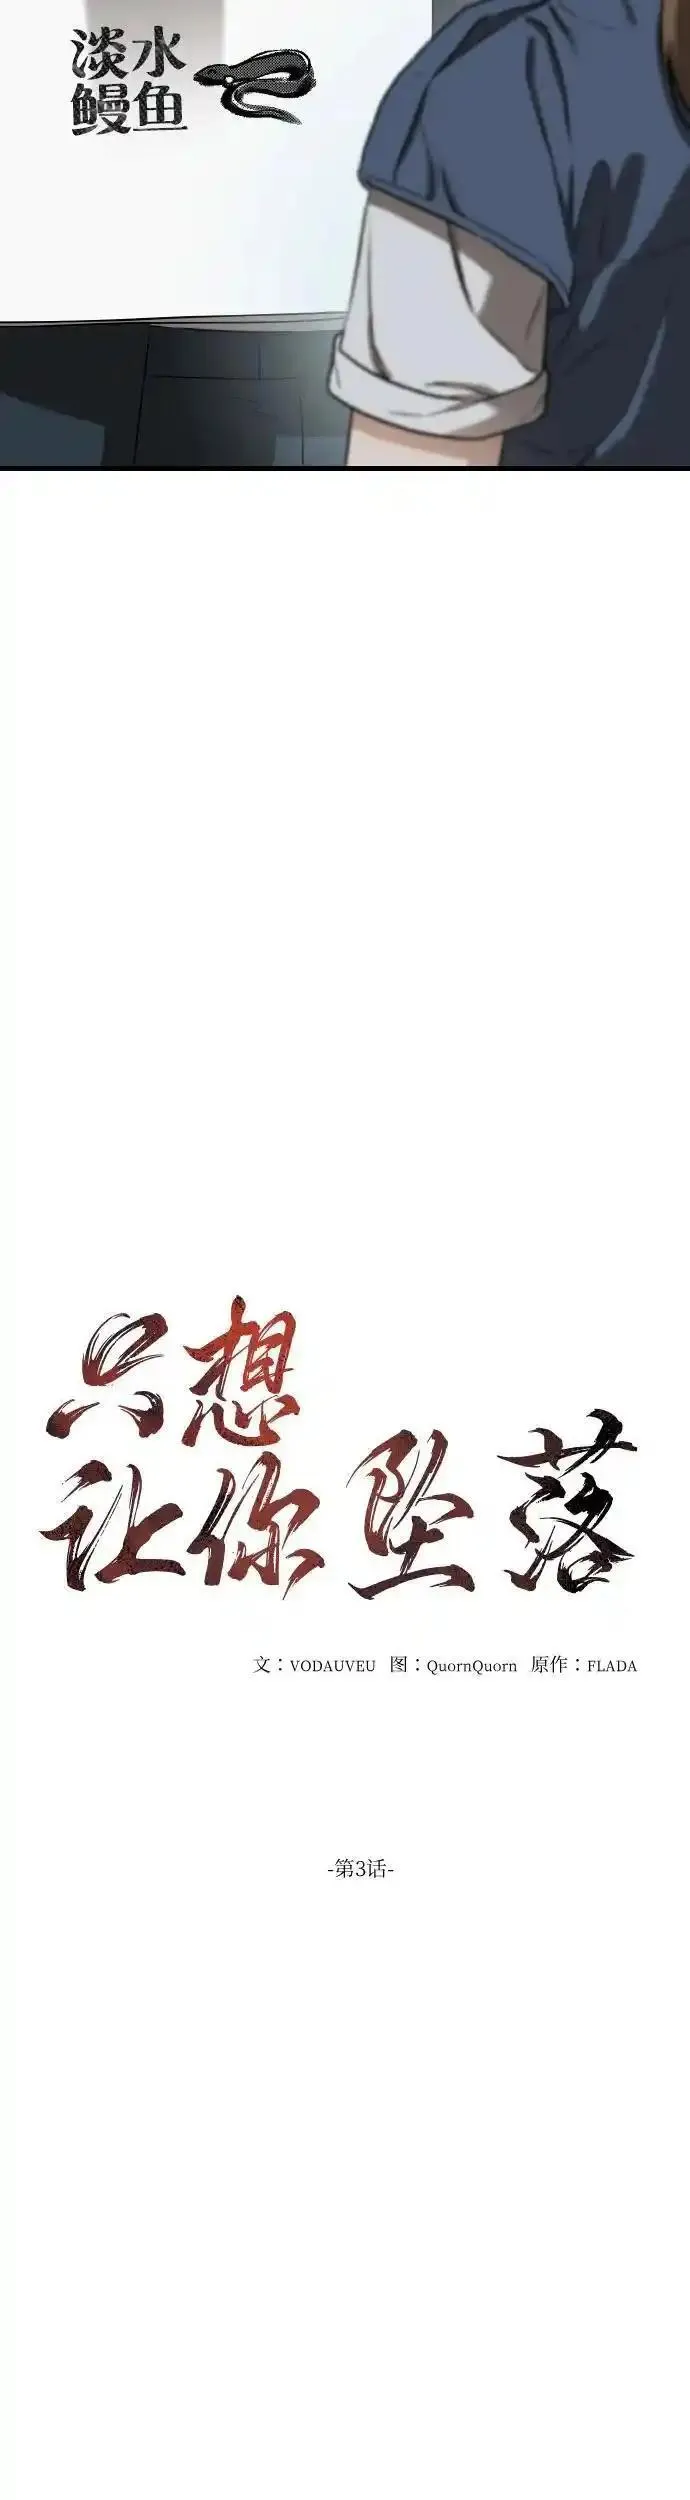 淡水
鳗鱼
只想
让你坠落
文：VODAUVEU 图：QuornQuorn 原作：FLADA
-第3话-